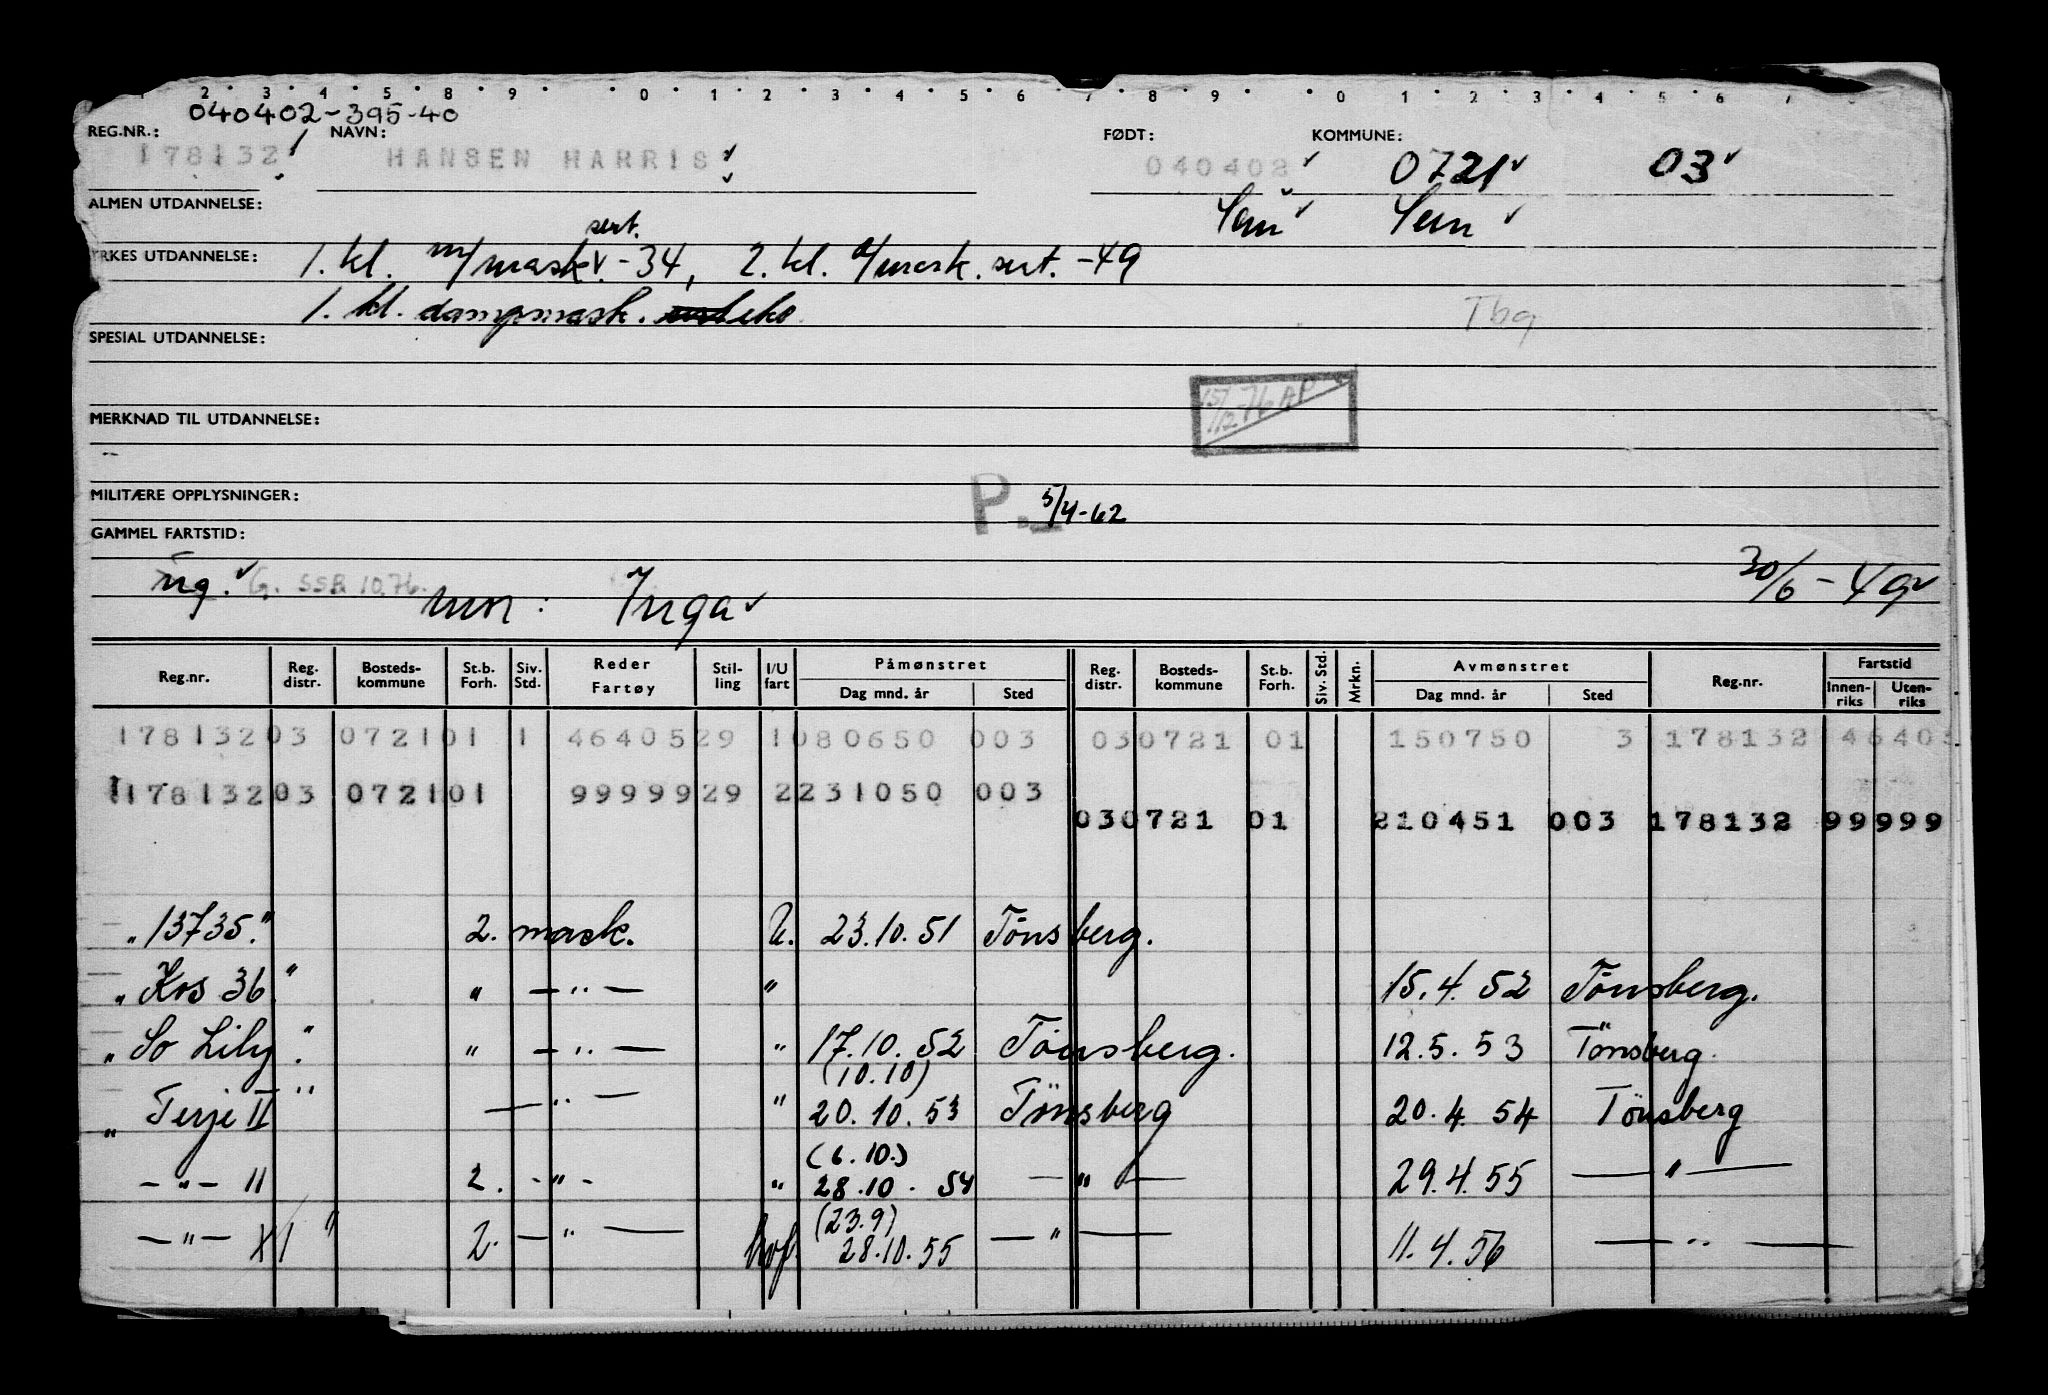 1 2 3 4 5 8 9 0 1 2 3 4 5 6 7 8 9 0 1 2 3 4 5 6 7
040402-395-40
REG.NR.: NAVN: FØDT: KOMMUNE:
178132 HANSEN HARRIS 040402 0721 03
ALMEN UTDANNELSE: Sem Sem
sert.
YRKES UTDANNELSE: 1. kl. m/mask. -34, 2. kl. d/mask. sert. -49
1. kl. dampmask. eks. Tbg
SPESIAL UTDANNELSE:
15/12-76 AP
MERKNAD TIL UTDANNELSE:
MILITÆRE OPPLYSNINGER: P. 5/4-62
GAMMEL FARTSTID:
ug. G. SSB 10.76. mor: Inga 30/6-49
Reg.nr. Reg. distr. Bosteds- kommune St.b. Forh. Siv. Std. Reder Fartøy Stil- ling I/U fart Påmønstret Dag mnd. år Sted Reg. distr. Bosteds- kommune St.b. Forh. Siv. Std. Mrkn. Avmønstret Dag mnd. år Sted Reg.nr. Fartstid Innen- riks Uten- riks
178132 03 0721 01 1 46405 29 1 080650 003 03 0721 01 150750 3 178132 4640
178132 03 0721 01 99999 29 2 231050 003
03 0721 01 210451 003 178132 99999
"13735." 2. mask. U. 23.10.51 Tönsberg.
"Kos 36" " — " — " 15.4.52 Tönsberg.
"So Lily." " — " — " 17.10.52 Tönsberg. 12.5.53 Tönsberg.
(10.10)
"Terje II" — " — " 20.10.53 Tönsberg 20.4.54 Tönsberg
(6.10.)
— " — 11 2. - " - " 28.10.54 — " — 29.4.55 — " —
(23.9)
— " — XI " 2. — " — hvf 28.10.55 — " — 11.4.56 — " —